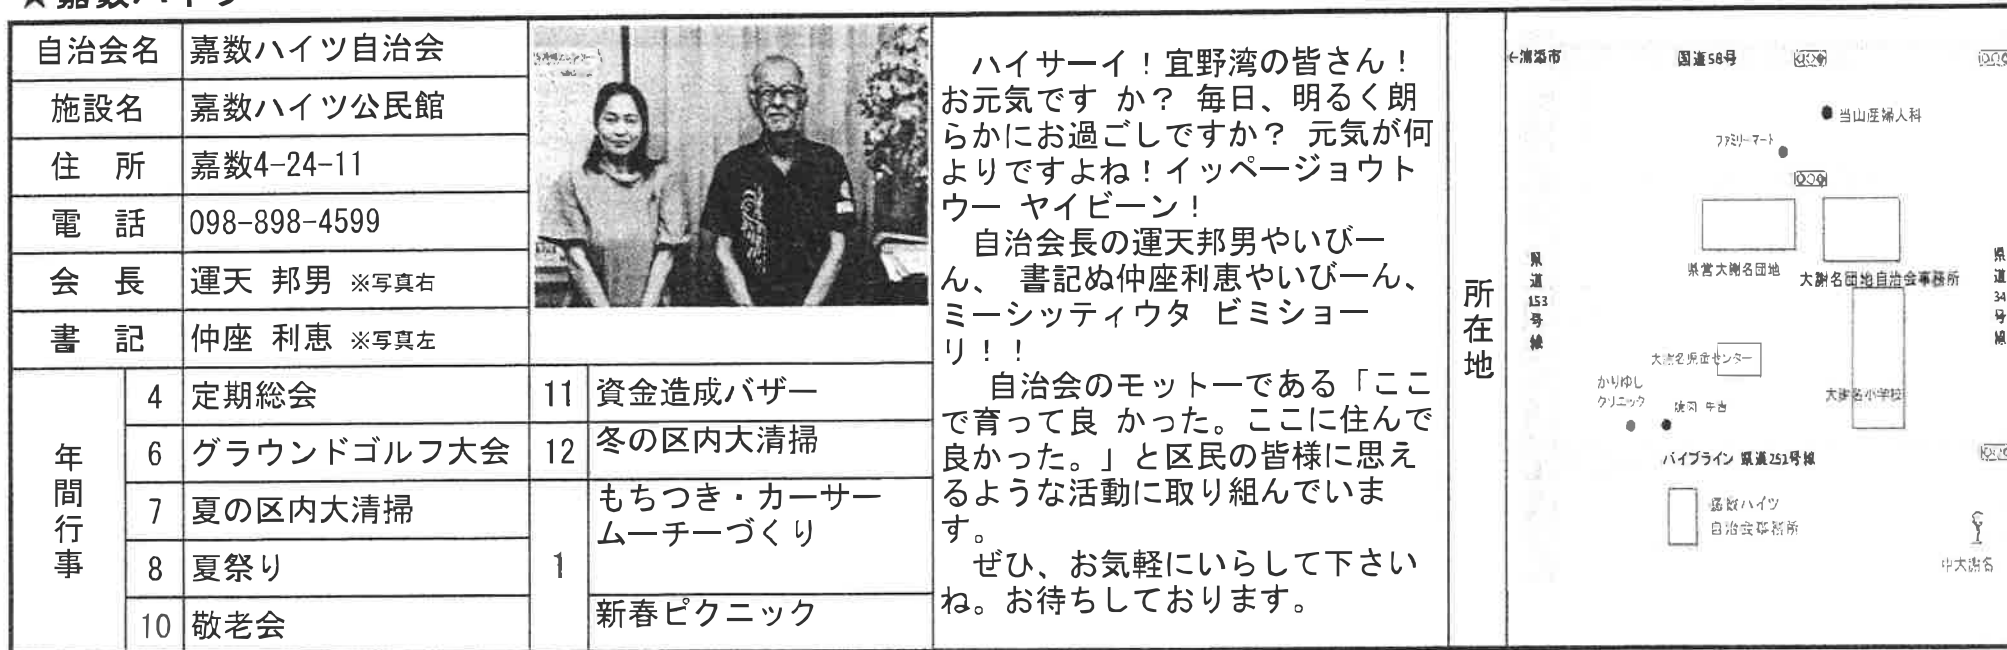 自治会名 嘉数ハイツ自治会
施設名 嘉数ハイツ公民館
住 所 嘉数4-24-11
電 話 098-898-4599
会 長 運天 邦男 ※写真右
書 記 仲座 利恵 ※写真左
年間行事
4 定期総会
6 グラウンドゴルフ大会
7 夏の区内大清掃
8 夏祭り
10 敬老会
11 資金造成バザー
12 冬の区内大清掃
1 もちつき・カーサー
ムーチーづくり
新春ピクニック
ハイサーイ!宜野湾の皆さん!
お元気です か? 毎日、明るく朗
らかにお過ごしですか? 元気が何
よりですよね!イッページョウト
ウー ヤイビーン!
自治会長の運天邦男やいびー
ん、 書記ぬ仲座利恵やいびーん、
ミーシッティウタ ビミショー
リ!!
自治会のモットーである「ここ
で育って良 かった。ここに住んで
良かった。」と区民の皆様に思え
るような活動に取り組んでいま
す。
ぜひ、お気軽にいらして下さい
ね。お待ちしております。
所在地
←浦添市
国道58号
当山産婦人科
ファミリーマート
県営大謝名団地
大謝名団地自治会事務所
県道153号線
県道34号線
大謝名県金センター
かりゆし
クリニック
焼肉 牛吉
大謝名小学校
パイプライン 県道251号線
嘉数ハイツ
自治会事務所
中大謝名